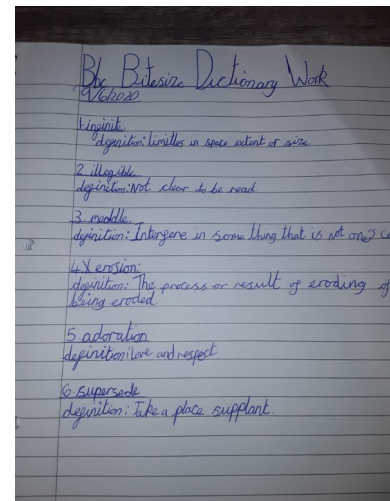 Bbc Bitesize Dictionary Work
9/6/2020
1. infinite.
definition: limitles in space extent or size
2 illegible
definition: Not clear to be read
3 meddle.
definition: Intergere in some thing that is not one's
4 X erosion:
definition: The process or result of eroding of
being eroded
5. adoration
definition: love and respect
6. supersede
definition: Take a place supplant.